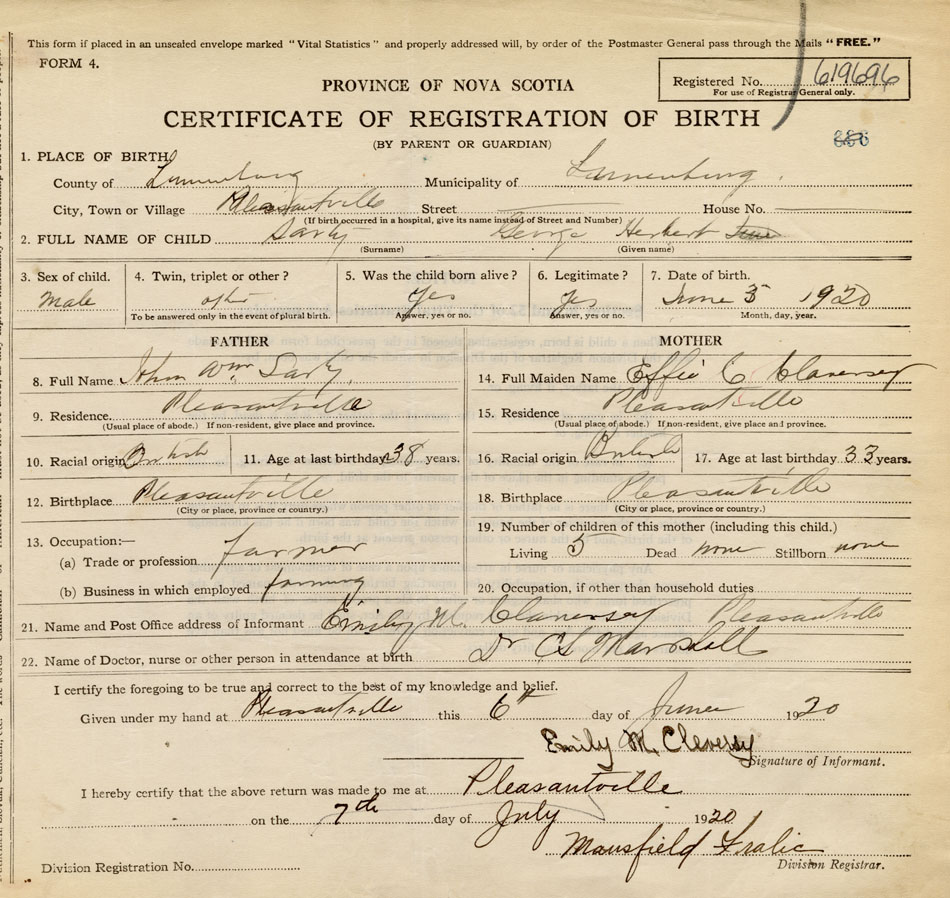 This form if placed in an unsealed envelope marked "Vital Statistics" and properly addressed will, by order of the Postmaster General pass through the Mails "FREE."
FORM 4.
Registered No. 619696
For use of Registrar General only.
PROVINCE OF NOVA SCOTIA
CERTIFICATE OF REGISTRATION OF BIRTH
(BY PARENT OR GUARDIAN)
1. PLACE OF BIRTH
County of Lunenburg Municipality of Lunenburg.
City, Town or Village Pleasantville Street House No.
(If birth occurred in a hospital, give its name instead of Street and Number)
2. FULL NAME OF CHILD Sarty George Herbert
(Surname) (Given name)
3. Sex of child. 4. Twin, triplet or other? 5. Was the child born alive? 6. Legitimate? 7. Date of birth.
Male Yes Yes June 5 1920
To be answered only in the event of plural birth. Answer, yes or no. Answer, yes or no. Month, day, year.
FATHER MOTHER
8. Full Name John Wm Sarty. 14. Full Maiden Name Effie C Claversey
9. Residence. Pleasantville 15. Residence Pleasantville
(Usual place of abode.) If non-resident, give place and province. (Usual place of abode.) If non-resident, give place and province.
10. Racial origin British 11. Age at last birthday 38 years. 16. Racial origin British 17. Age at last birthday 33 years.
12. Birthplace Pleasantville 18. Birthplace Pleasantville
(City or place, province or country.) (City or place, province or country.)
13. Occupation:— 19. Number of children of this mother (including this child.)
(a) Trade or profession farmer Living 5 Dead none Stillborn none
(b) Business in which employed farming 20. Occupation, if other than household duties
21. Name and Post Office address of Informant Emily M. Claversey Pleasantville
22. Name of Doctor, nurse or other person in attendance at birth Dr CS Marshall
I certify the foregoing to be true and correct to the best of my knowledge and belief.
Given under my hand at Pleasantville this 6th day of June 1920
Emily M. Cleversy
Signature of Informant.
I hereby certify that the above return was made to me at Pleasantville
on the 7th day of July 1920
Mansfield Fralic
Division Registration No. Division Registrar.